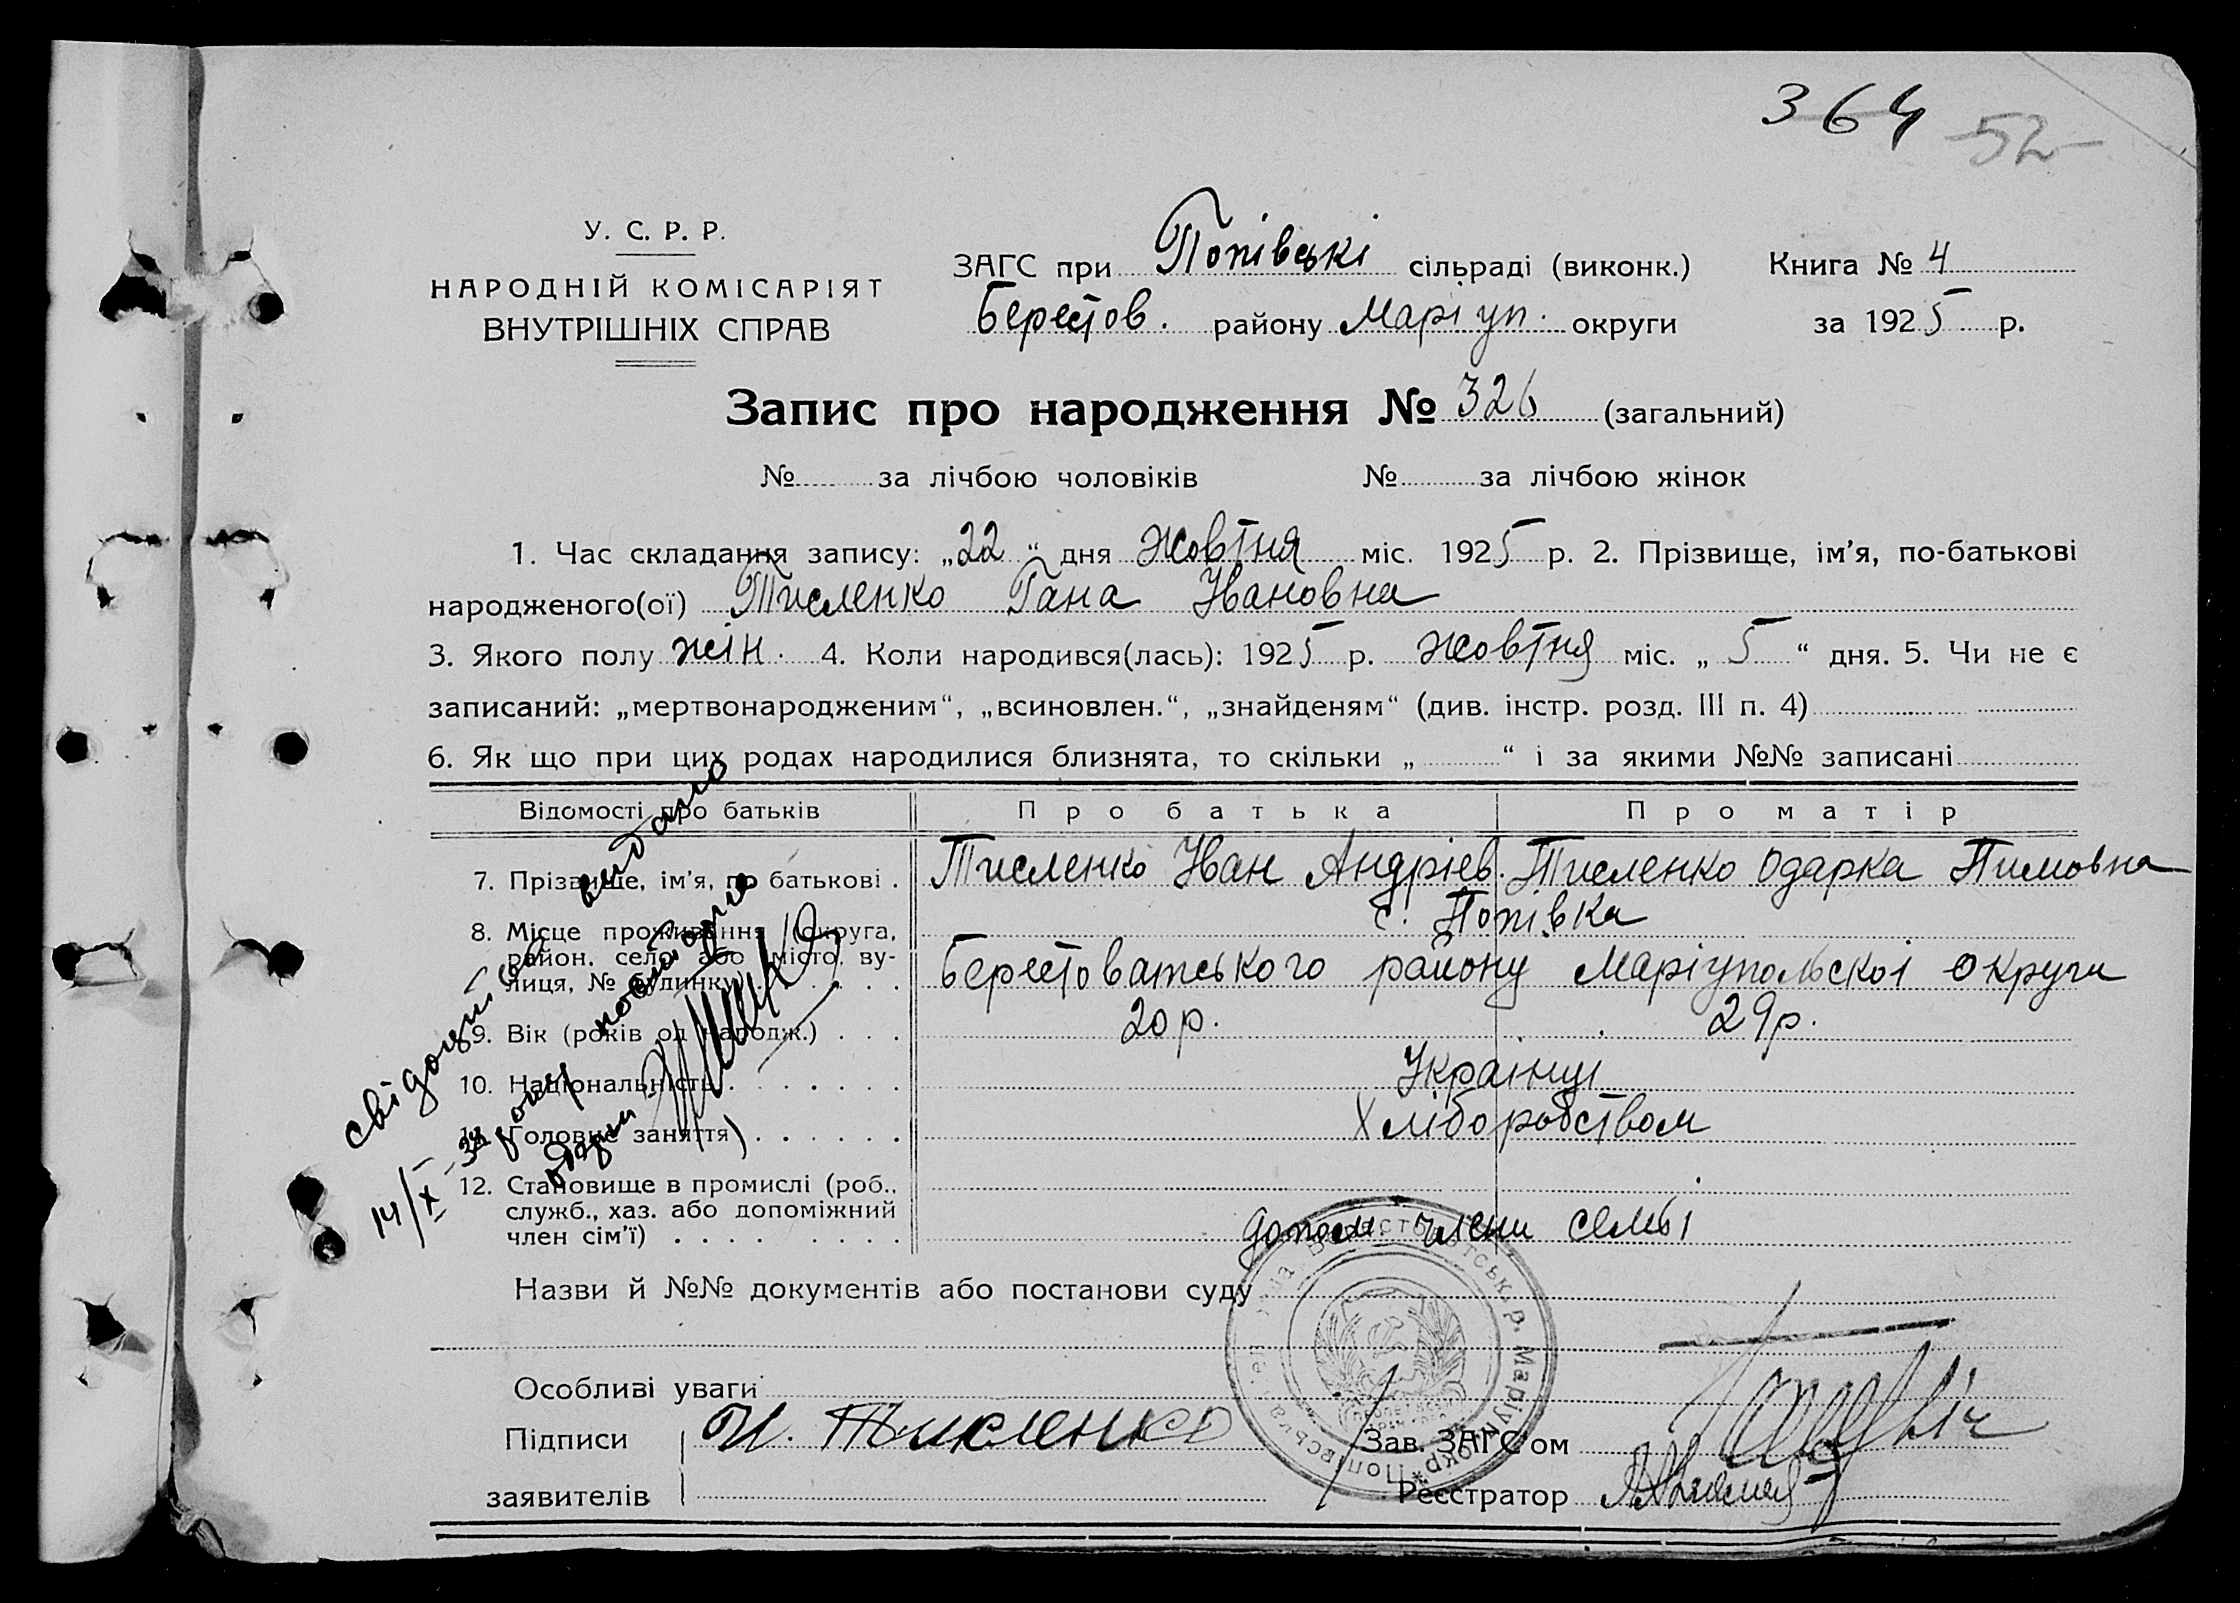 364 52
У. С. Р. Р.
НАРОДНІЙ КОМІСАРІЯТ
ВНУТРІШНІХ СПРАВ
ЗАГС при Попівські сільраді (виконк.) Книга № 4
Берестов. району Маріуп. округи за 1925 р.
Запис про народження № 326 (загальний)
№ за лічбою чоловіків № за лічбою жінок
1. Час складання запису: „22“ дня жовтня міс. 1925 р. 2. Прізвище, ім’я, по-батькові
народженого(ої) Тисленко Гана Івановна
3. Якого полу жін. 4. Коли народився(лась): 1925 р. жовтня міс. „5“ дня. 5. Чи не є
записаний: „мертвонародженим“, „всиновлен.“, „знайденям“ (див. інстр. розд. III п. 4)
6. Як що при цих родах народилися близнята, то скільки „ “ і за якими №№ записані
Відомості про батьків Про батька Про матір
7. Прізвище, ім’я, по батькові . Тисленко Іван Андріев. Тисленко Одарка Тимовна
8. Місце проживання (округа, с. Попівка
район, село, або місто, ву-
лиця, № будинку) Берестоватського району Маріупольскоі округи
9. Вік (років од народж.) . . . 20 р. 29 р.
10. Національність Українці
11. Головне заняття Хліборобством
12. Становище в промислі (роб.,
служб., хаз. або допоміжний
член сім’ї) допом члени семьі
Назви й №№ документів або постанови суду
Особливі уваги
Підписи И. Тисленко Зав. ЗАГС’ом
заявителів Реєстратор
свідоцтво видано
14/X-34 року
Попівська Берестоватськ. р. Маріуп. окр.